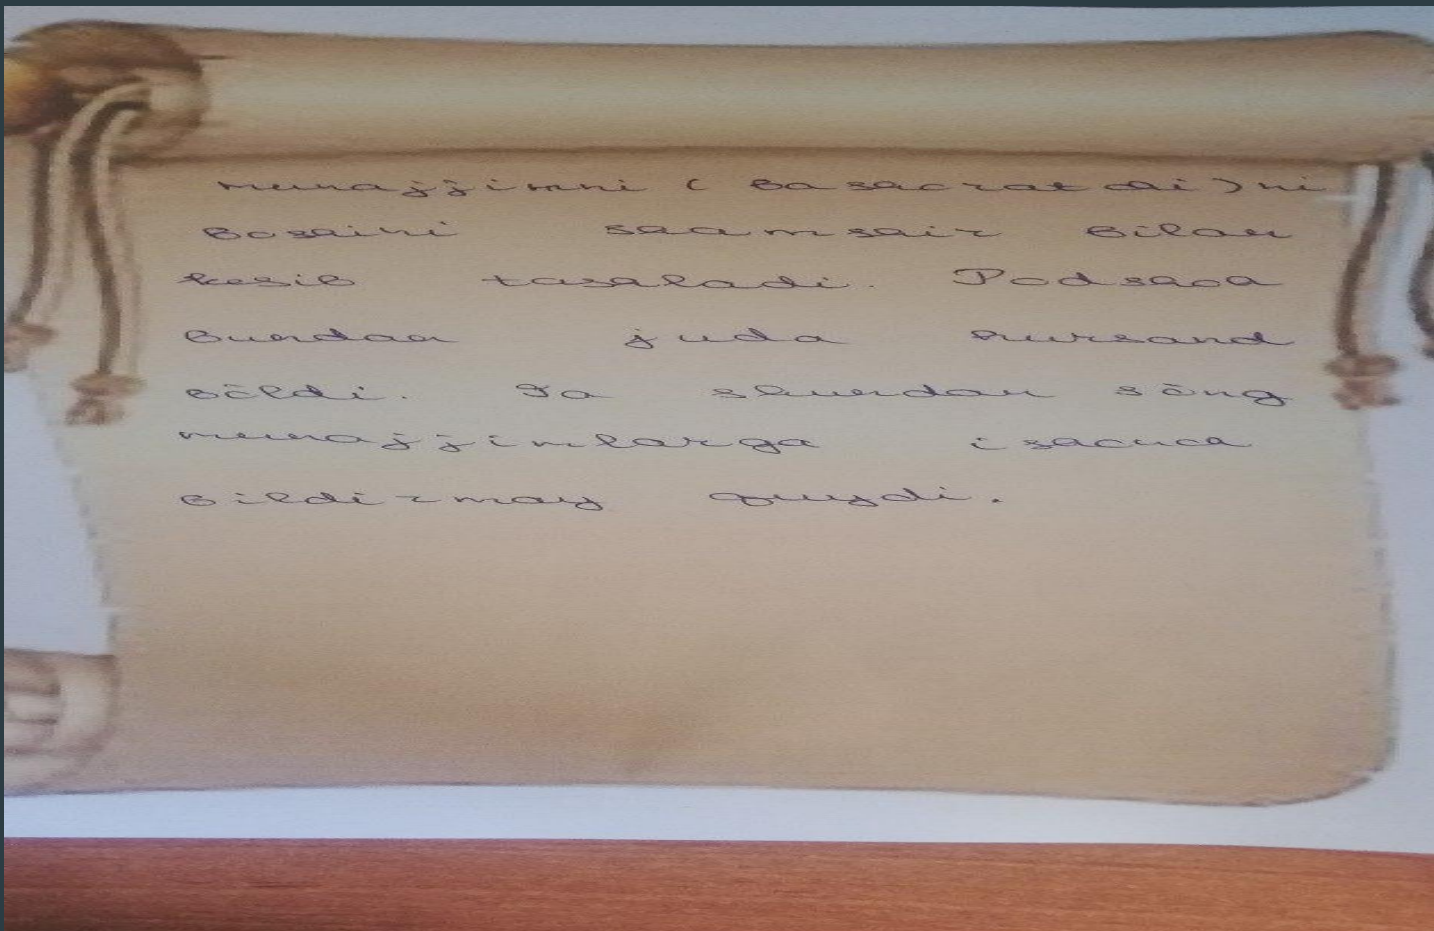 munajjimni (Bashoratchi)ni
boshini shamshir bilan
kesib tashladi. Podshoh
bundan juda hursand
bõldi. Va shundan sõng
munajjimlarga ishonch
bildirmay quydi.